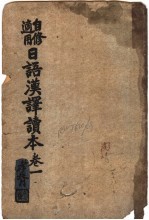 自修
適用
日語漢譯讀本 卷一